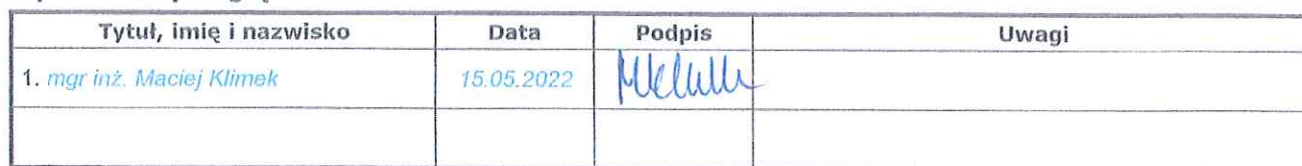 Tytuł, imię i nazwisko Data Podpis Uwagi
1. mgr inż. Maciej Klimek 15.05.2022